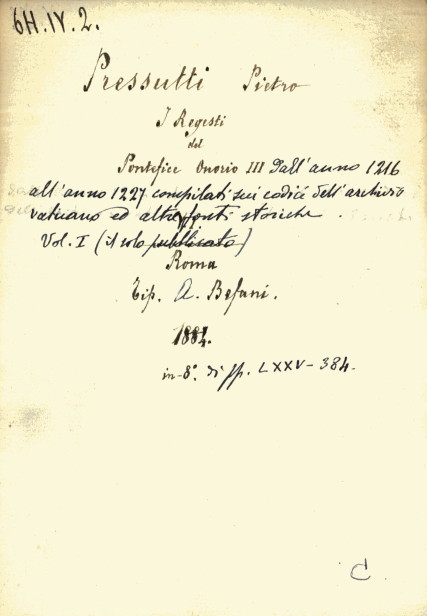 6H.IV.2.
Pressutti Pietro
I Regesti
del
Pontefice Onorio III Dall'anno 1216
all'anno 1227 compilati sui codici dell'archivio
vaticano ed altre fonti storiche.
Vol. I (il solo pubblicato)
Roma
Tip. A. Befani.
1884.
in-8° di pp. LXXV-384.
C